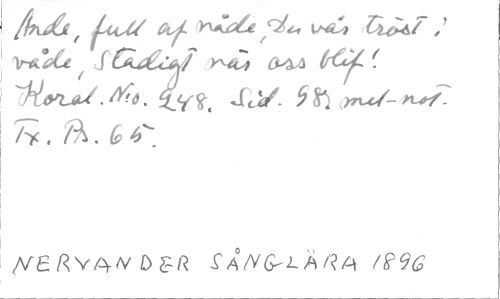 Ande, full af nåde, Du vår tröst i
våde, Stadigt när oss blif!
Koral. No. 248. Sid. 98, mel-not.
Tx. Ps. 65.
NERVANDER SÅNGLÄRA 1896